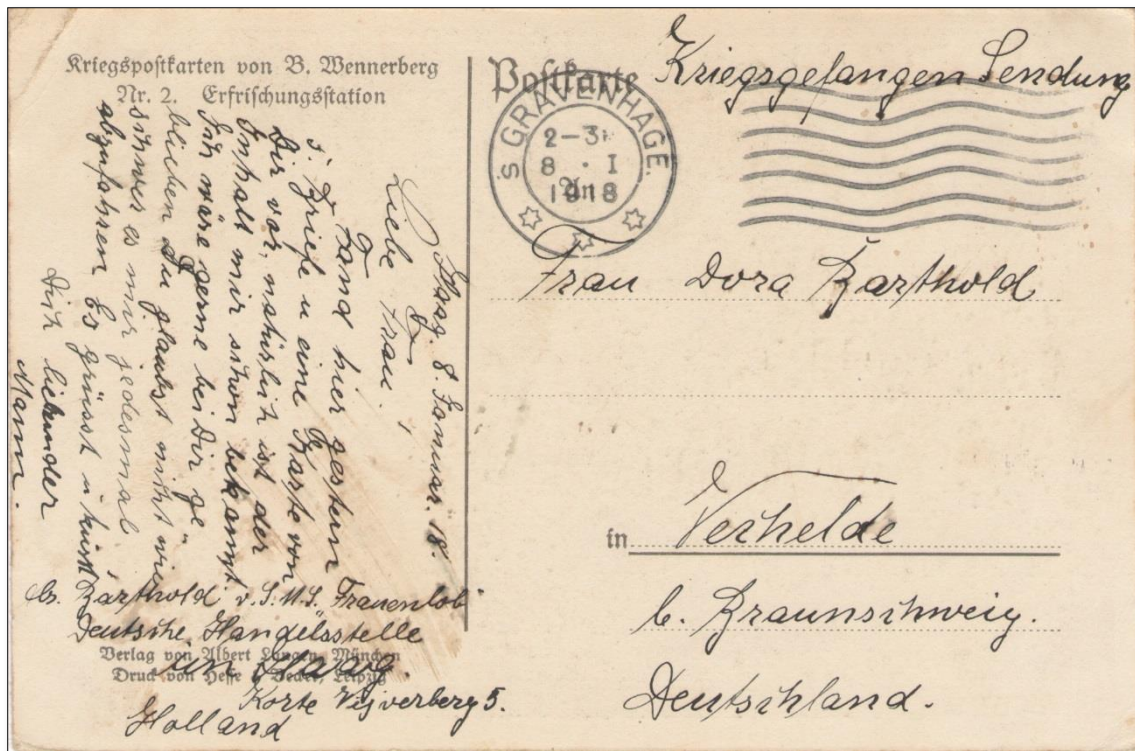 Kriegspostkarten von B. Wennerberg
Nr. 2. Erfrischungsstation
Haag. 8. Januar. 18.
Liebe Frau!
Fand hier gestern
3. Briefe u eine Karte von
Dir vor, natürlich ist der
Inhalt mir schon bekannt
Ich wäre gerne bei Dir ge"
blieben Du glaubst nicht wie
schwer es mir jedesmal,
abzufahren Es grüsst u. küsst
Dich liebender
Mann.
Barthold v. S.M.S. "Frauenlob"
Deutsche Handelsstelle
im Haag.
Korte Vijverberg 5.
Holland
Verlag von Albert Langen, München
Druck von Hesse & Becker, Leipzig
Postkarte
Kriegsgefangen Sendung
'S GRAVENHAGE.
2-3
8 · I
1918
Frau Dora Barthold
in Vechelde
b. Braunschweig.
Deutschland.